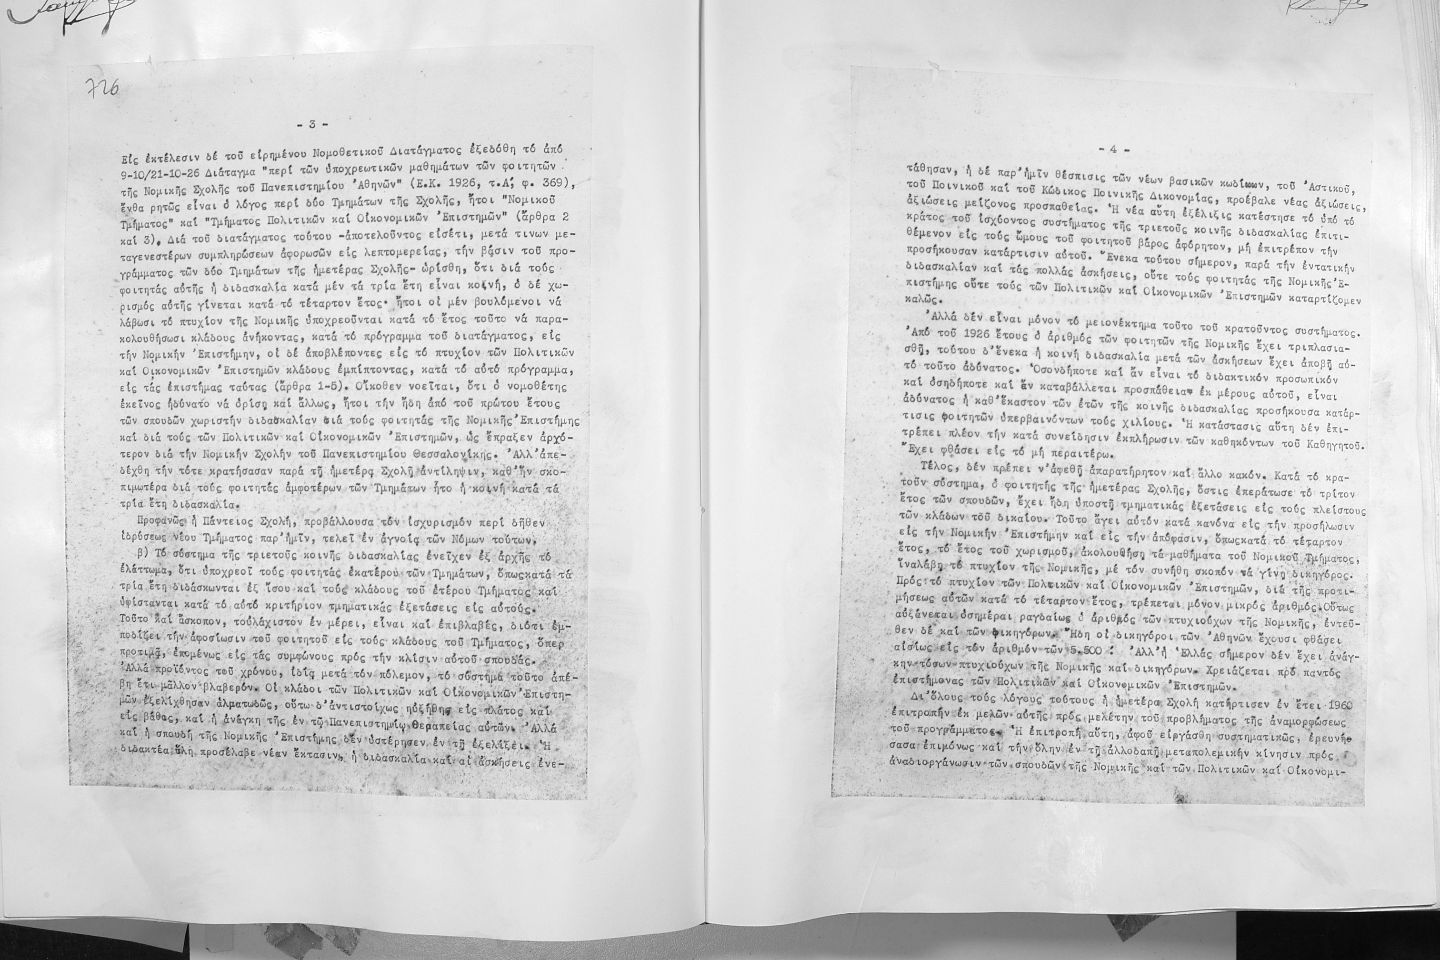 726
- 3 -
Εἰς ἐκτέλεσιν δέ τοῦ εἰρημένου Νομοθετικοῦ Διατάγματος ἐξεδόθη τό ἀπό
9-10/21-10-26 Διάταγμα "περί τῶν ὑποχρεωτικῶν μαθημάτων τῶν φοιτητῶν
τῆς Νομικῆς Σχολῆς τοῦ Πανεπιστημίου Ἀθηνῶν" (Ε.Κ. 1926, τ.Α, φ. 369),
ἔνθα ρητῶς εἶναι ὁ λόγος περί δύο Τμημάτων τῆς Σχολῆς, ἤτοι "Νομικοῦ
Τμήματος" καί "Τμήματος Πολιτικῶν καί Οἰκονομικῶν Ἐπιστημῶν" (ἄρθρα 2
καί 3). Διά τοῦ διατάγματος τούτου -ἀποτελοῦντος εἰσέτι, μετά τινων με-
ταγενεστέρων συμπληρώσεων ἀφορωσῶν εἰς λεπτομερείας, τήν βάσιν τοῦ προ-
γράμματος τῶν δύο Τμημάτων τῆς ἡμετέρας Σχολῆς- ὡρίσθη, ὅτι διά τούς
φοιτητάς αὐτῆς ἡ διδασκαλία κατά μέν τά τρία ἔτη εἶναι κοινή, ὁ δέ χω-
ρισμός αὐτῆς γίνεται κατά τό τέταρτον ἔτος· ἤτοι οἱ μέν βουλόμενοι νά
λάβωσι τό πτυχίον τῆς Νομικῆς ὑποχρεοῦνται κατά τό ἔτος τοῦτο νά παρα-
κολουθήσωσι κλάδους ἀνήκοντας, κατά τό πρόγραμμα τοῦ διατάγματος, εἰς
τήν Νομικήν Ἐπιστήμην, οἱ δέ ἀποβλέποντες εἰς τό πτυχίον τῶν Πολιτικῶν
καί Οἰκονομικῶν Ἐπιστημῶν κλάδους ἐμπίπτοντας, κατά τό αὐτό πρόγραμμα,
εἰς τάς ἐπιστήμας ταύτας (ἄρθρα 1-5). Οἴκοθεν νοεῖται, ὅτι ὁ νομοθέτης
ἐκεῖνος ἠδύνατο νά ὁρίσῃ καί ἄλλως, ἤτοι τήν ἤδη ἀπό τοῦ πρώτου ἔτους
τῶν σπουδῶν χωριστήν διδασκαλίαν διά τούς φοιτητάς τῆς Νομικῆς Ἐπιστήμης
καί διά τούς τῶν Πολιτικῶν καί Οἰκονομικῶν Ἐπιστημῶν, ὡς ἔπραξεν ἀρχό-
τερον διά τήν Νομικήν Σχολήν τοῦ Πανεπιστημίου Θεσσαλονίκης. Ἀλλ'ἀπε-
δέχθη τήν τότε κρατήσασαν παρά τῇ ἡμετέρᾳ Σχολῇ ἀντίληψιν, καθ'ἥν σκο-
πιμωτέρα διά τούς φοιτητάς ἀμφοτέρων τῶν Τμημάτων ἦτο ἡ κοινή κατά τά
τρία ἔτη διδασκαλία.
Προφανῶς ἡ Πάντειος Σχολή, προβάλλουσα τόν ἰσχυρισμόν περί δῆθεν
ἱδρύσεως νέου Τμήματος παρ'ἡμῖν, τελεῖ ἐν ἀγνοίᾳ τῶν Νόμων τούτων.
β) Τό σύστημα τῆς τριετοῦς κοινῆς διδασκαλίας ἐνεῖχεν ἐξ ἀρχῆς τό
ἐλάττωμα, ὅτι ὑποχρεοῖ τούς φοιτητάς ἑκατέρου τῶν Τμημάτων, ὅπωςκατά τά
τρία ἔτη διδάσκωνται ἐξ ἴσου καί τούς κλάδους τοῦ ἑτέρου Τμήματος καί
ὑφίστανται κατά τό αὐτό κριτήριον τμηματικάς ἐξετάσεις εἰς αὐτούς.
Τοῦτο καί ἄσκοπον, τοὐλάχιστον ἐν μέρει, εἶναι καί ἐπιβλαβές, διότι ἐμ-
ποδίζει τήν ἀφοσίωσιν τοῦ φοιτητοῦ εἰς τούς κλάδους τοῦ Τμήματος, ὅπερ
προτιμᾷ, ἑπομένως εἰς τάς συμφώνους πρός τήν κλίσιν αὐτοῦ σπουδάς.
Ἀλλά προϊόντος τοῦ χρόνου, ἰδίᾳ μετά τόν πόλεμον, τό σύστημα τοῦτο ἀπέ-
βη ἔτι μᾶλλον βλαβερόν. Οἱ κλάδοι τῶν Πολιτικῶν καί Οἰκονομικῶν Ἐπιστη-
μῶν ἐξελίχθησαν ἁλματωδῶς, οὕτω δ'ἀντιστοίχως ηὐξήθη εἰς πλάτος καί
εἰς βάθος, καί ἡ ἀνάγκη τῆς ἐν τῷ Πανεπιστημίῳ θεραπείας αὐτῶν. Ἀλλά
καί ἡ σπουδή τῆς Νομικῆς Ἐπιστήμης δέν ὑστέρησεν ἐν τῇ ἐξελίξει. Ἡ
διδακτέα ὕλη προσέλαβε νέαν ἔκτασιν, ἡ διδασκαλία καί αἱ ἀσκήσεις ἐνε-
- 4 -
τάθησαν, ἡ δέ παρ'ἡμῖν θέσπισις τῶν νέων βασικῶν κωδίκων, τοῦ Ἀστικοῦ,
τοῦ Ποινικοῦ καί τοῦ Κώδικος Ποινικῆς Δικονομίας, προέβαλε νέας ἀξιώσεις,
ἀξιώσεις μείζονος προσπαθείας. Ἡ νέα αὕτη ἐξέλιξις κατέστησε τό ὑπό τό
κράτος τοῦ ἰσχύοντος συστήματος τῆς τριετοῦς κοινῆς διδασκαλίας ἐπιτι-
θέμενον εἰς τούς ὤμους τοῦ φοιτητοῦ βάρος ἀφόρητον, μή ἐπιτρέπον τήν
προσήκουσαν κατάρτισιν αὐτοῦ. Ἕνεκα τούτου σήμερον, παρά τήν ἐντατικήν
διδασκαλίαν καί τάς πολλάς ἀσκήσεις, οὔτε τούς φοιτητάς τῆς Νομικῆς Ἐ-
πιστήμης οὔτε τούς τῶν Πολιτικῶν καί Οἰκονομικῶν Ἐπιστημῶν καταρτίζομεν
καλῶς.
Ἀλλά δέν εἶναι μόνον τό μειονέκτημα τοῦτο τοῦ κρατοῦντος συστήματος.
Ἀπό τοῦ 1926 ἔτους ὁ ἀριθμός τῶν φοιτητῶν τῆς Νομικῆς ἔχει τριπλασια-
σθῆ, τούτου δ'ἕνεκα ἡ κοινή διδασκαλία μετά τῶν ἀσκήσεων ἔχει ἀποβῆ αὐ-
τό τοῦτο ἀδύνατος. Ὁσονδήποτε καί ἄν εἶναι τό διδακτικόν προσωπικόν
καί ὁσηδήποτε καί ἄν καταβάλλεται προσπάθεια ἐκ μέρους αὐτοῦ, εἶναι
ἀδύνατος ἡ καθ'ἕκαστον τῶν ἐτῶν τῆς κοινῆς διδασκαλίας προσήκουσα κατάρ-
τισις φοιτητῶν ὑπερβαινόντων τούς χιλίους. Ἡ κατάστασις αὕτη δέν ἐπι-
τρέπει πλέον τήν κατά συνείδησιν ἐκπλήρωσιν τῶν καθηκόντων τοῦ Καθηγητοῦ.
Ἔχει φθάσει εἰς τό μή περαιτέρω.
Τέλος, δέν πρέπει ν'ἀφεθῇ ἀπαρατήρητον καί ἄλλο κακόν. Κατά τό κρα-
τοῦν σύστημα, ὁ φοιτητής τῆς ἡμετέρας Σχολῆς, ὅστις ἐπεράτωσε τό τρίτον
ἔτος τῶν σπουδῶν, ἔχει ἤδη ὑποστῆ τμηματικάς ἐξετάσεις εἰς τούς πλείστους
τῶν κλάδων τοῦ δικαίου. Τοῦτο ἄγει αὐτόν κατά κανόνα εἰς τήν προσήλωσιν
εἰς τήν Νομικήν Ἐπιστήμην καί εἰς τήν ἀπόφασιν, ὅπωςκατά τό τέταρτον
ἔτος, τό ἔτος τοῦ χωρισμοῦ, ἀκολουθήσῃ τά μαθήματα τοῦ Νομικοῦ Τμήματος,
ἵναλάβῃ τό πτυχίον τῆς Νομικῆς, μέ τόν συνήθη σκοπόν νά γίνῃ δικηγόρος.
Πρός τό πτυχίον τῶν Πολιτικῶν καί Οἰκονομικῶν Ἐπιστημῶν, διά τῆς προτι-
μήσεως αὐτῶν κατά τό τέταρτον ἔτος, τρέπεται μόνον μικρός ἀριθμός.Οὕτως
αὐξάνεται ὁσημέραι ραγδαίως ὁ ἀριθμός τῶν πτυχιούχων τῆς Νομικῆς, ἐντεῦ-
θεν δέ καί τῶν δικηγόρων. Ἤδη οἱ δικηγόροι τῶν Ἀθηνῶν ἔχουσι φθάσει
αἰσίως εἰς τόν ἀριθμόν τῶν 5.500 ! Ἀλλ'ἡ Ἑλλάς σήμερον δέν ἔχει ἀνάγ-
κην τόσων πτυχιούχων τῆς Νομικῆς καί δικηγόρων. Χρειάζεται πρό παντός
ἐπιστήμονας τῶν Πολιτικῶν καί Οἰκονομικῶν Ἐπιστημῶν.
Δι'ὅλους τούς λόγους τούτους ἡ ἡμετέρα Σχολή κατήρτισεν ἐν ἔτει 1960
ἐπιτροπήν ἐκ μελῶν αὐτῆς πρός μελέτην τοῦ προβλήματος τῆς ἀναμορφώσεως
τοῦ προγράμματος. Ἡ ἐπιτροπή αὕτη, ἀφοῦ εἰργάσθη συστηματικῶς, ἐρευνή-
σασα ἐπιμόνως καί τήν ὅλην ἐν τῇ ἀλλοδαπῇ μεταπολεμικήν κίνησιν πρός
ἀναδιοργάνωσιν τῶν σπουδῶν τῆς Νομικῆς καί τῶν Πολιτικῶν καί Οἰκονομι-